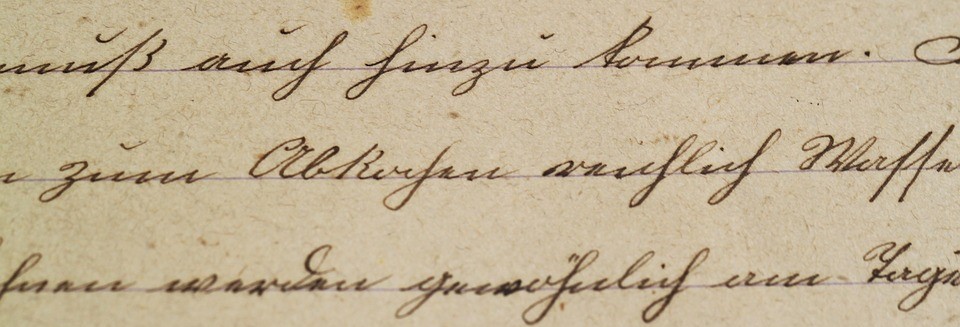 muß auch hinzu kommen.
zum Abkochen reichlich Wasse
hnen werden gewöhnlich am Tage